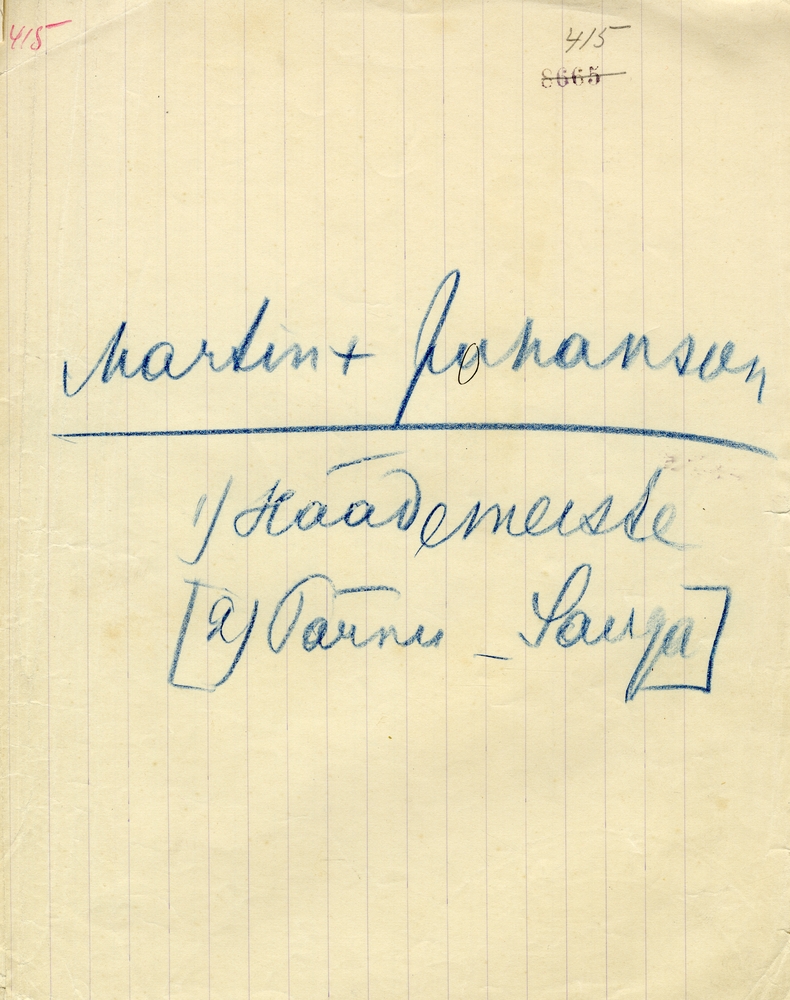 415 415
8665
Martin + Johanson
1) Häädemeeste
[2) Pärnu - Sauga]